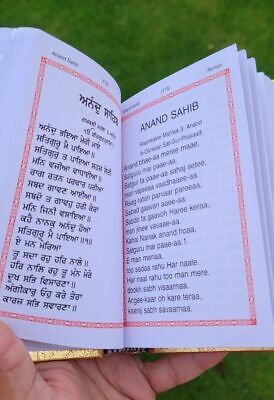 Anand Sahib
(178)
ਅਨੰਦੁ ਸਾਹਿਬ
ਰਾਮਕਲੀ ਮਹਲਾ ੩ ਅਨੰਦੁ
ੴ ਸਤਿਗੁਰ ਪ੍ਰਸਾਦਿ॥
ਅਨੰਦੁ ਭਇਆ ਮੇਰੀ ਮਾਏ
ਸਤਿਗੁਰੂ ਮੈ ਪਾਇਆ॥
ਸਤਿਗੁਰੁ ਤ ਪਾਇਆ ਸਹਜ ਸੇਤੀ
ਮਨਿ ਵਜੀਆ ਵਾਧਾਈਆ॥
ਰਾਗ ਰਤਨ ਪਰਵਾਰ ਪਰੀਆ
ਸਬਦ ਗਾਵਣ ਆਈਆ॥
ਸਬਦੋ ਤ ਗਾਵਹੁ ਹਰੀ ਕੇਰਾ
ਮਨਿ ਜਿਨੀ ਵਸਾਇਆ॥
ਕਹੈ ਨਾਨਕੁ ਅਨੰਦੁ ਹੋਆ
ਸਤਿਗੁਰੂ ਮੈ ਪਾਇਆ॥੧॥
ਏ ਮਨ ਮੇਰਿਆ
ਤੂ ਸਦਾ ਰਹੁ ਹਰਿ ਨਾਲੇ॥
ਹਰਿ ਨਾਲਿ ਰਹੁ ਤੂ ਮੰਨ ਮੇਰੇ
ਦੂਖ ਸਭਿ ਵਿਸਾਰਣਾ॥
ਅੰਗੀਕਾਰੁ ਓਹੁ ਕਰੇ ਤੇਰਾ
ਕਾਰਜ ਸਭਿ ਸਵਾਰਣਾ॥
(179)
Roman
ANAND SAHIB
Raamkalee Mahlaa 3, Anand
Ik-Oankaar Sat-Gur-Prasaad.
Anand bhae-aa meree maae,
Satguroo mai paae-aa.
Satgur ta paae-aa sahaj setee,
man vajeeaa vaadhaaee-aa.
Raag ratan parvaar paree-aa
Sabad gaavan aaee-aa.
Sabdo ta gaavoh Haree keraa,
man jinee vasaae-aa.
Kahai Nanak anand hoaa,
Satguroo mai paae-aa.1.
E man meriaa,
too sadaa rahu Har naale.
Har naal rahu too man mere,
dookh sabh visaarnaa.
Angee-kaar oh kare teraa,
kaaraj sabh savaarnaa.